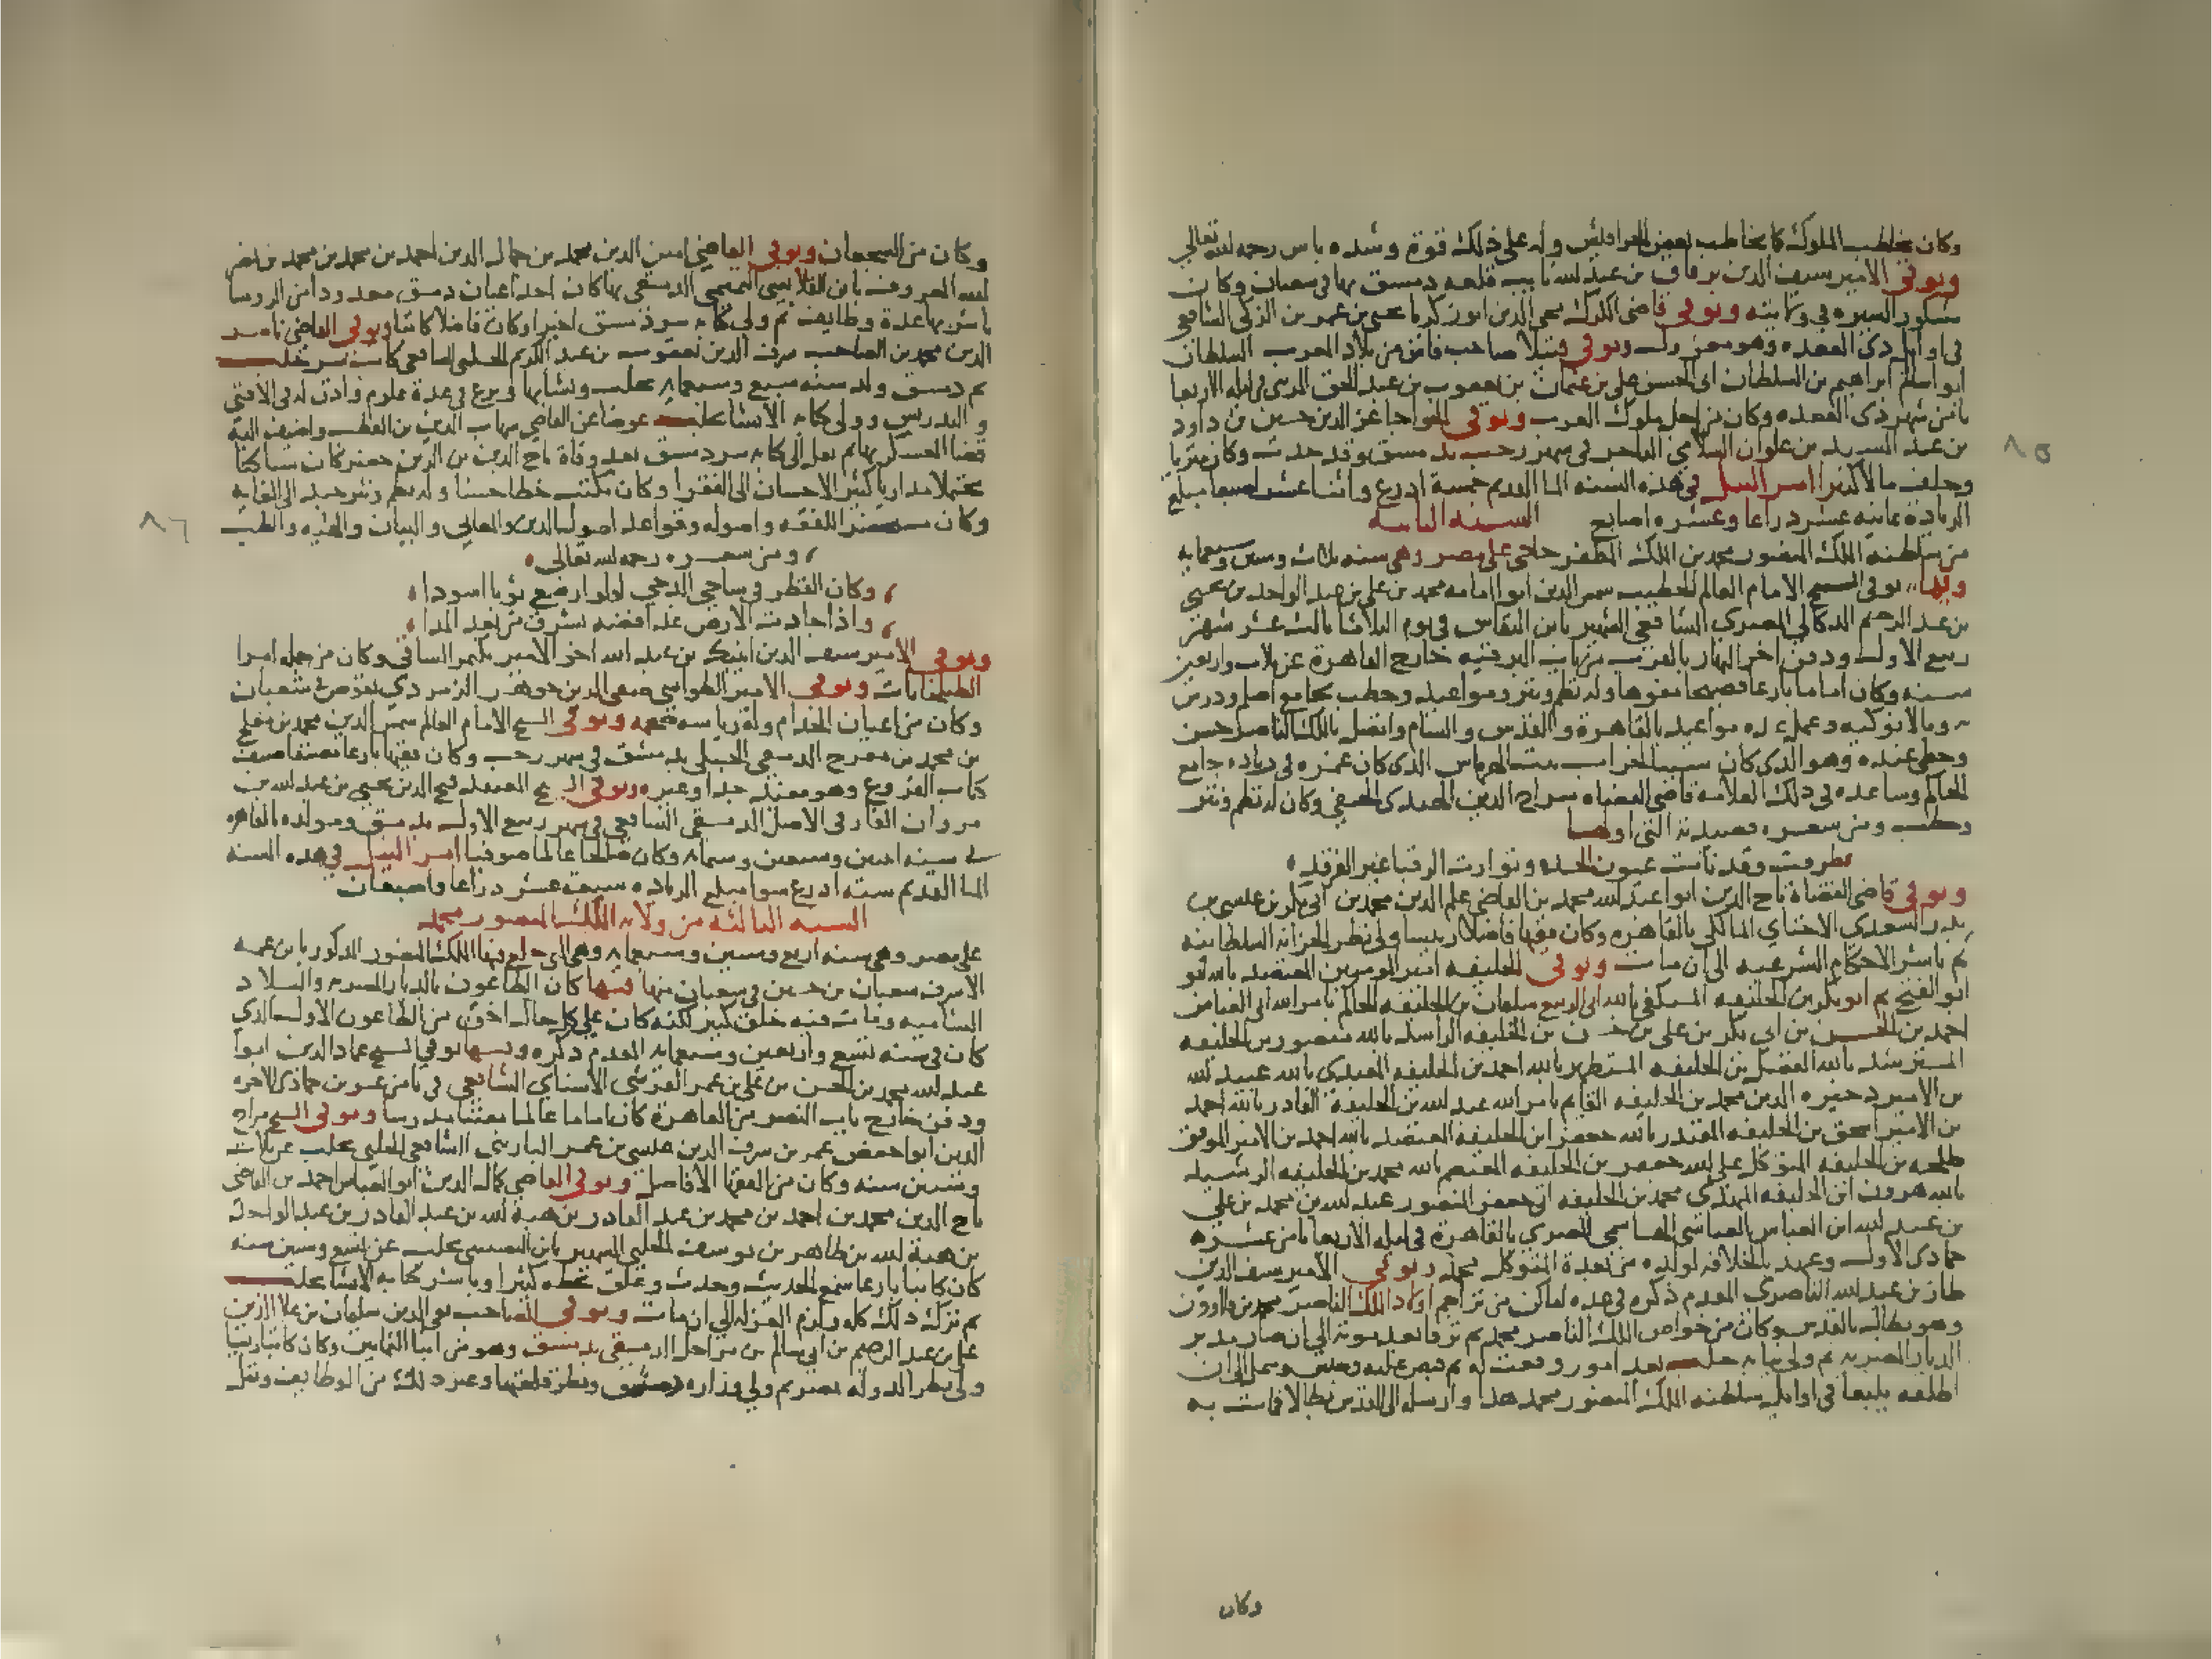 وكان يخاطب الملوك كما يخاطب بعض الحرافيش وله على ذلك قوة وشدة باس رحمه الله تعالى
وتوفي الامير سيف الدين برناق بن عبد الله نايب قلعه دمشق بها في شعبان وكان
مشكور السيره في ولايته وتوفي قاضي الكرك محي الدين ابو زكريا يحيى بن عمر بن الزكي الشافعي
في اوايل ذي القعده وهو معزول وتوفي قتيلا صاحب فاس من بلاد المغرب السلطان
ابو سالم ابراهيم بن السلطان ابي الحسن علي بن عثمان بن يعقوب بن عبد الحق المريني في ليله الاربعا
ثامن شهر ذي القعده وكان من اجل ملوك الغرب وتوفي الخواجا عز الدين حسين بن داود
بن عبد السيد بن علوان السلامي التاجر في شهر رجب بدمشق وقد حدث وكان مثريا
وخلف مالا كثيرا امر النيل في هذه السنه الما القديم خمسة ادرع واثنا عشر اصبعا مبلغ
الزيادة ثمانيه عشر دراعا وعشره اصابع السنه الثانيه
من سلطنه الملك المنصور محمد بن الملك المظفر حاجي على مصر وهي سنه ثلاث وستين وسبعمايه
وفيها توفي الشيخ الامام العالم الخطيب شمس الدين ابو امامه محمد بن علي بن عبد الواحد بن يحيى
بن عبد الرحيم الدكالي المصري الشافعي الشهير بابن النقاش في يوم الثلاثا ثالث عشر شهر
ربيع الاول ودفن اخر النهار بالقرب من باب البرقيه خارج القاهرة عن ثلاث واربعين
سنه وكان اماما بارعا فصيحا مفوها وله نظم ونثر ومواعيد وخطب بجامع اصلم ودرس
به وبالانوكيه وعمل عده مواعيد بالقاهرة والقدس والشام واتصل بالملك الناصر حسن
وحظي عنده وهو الذي كان سببا لخراب بيت الهرماس الذي كان عمره في زياده جامع
الحاكم وساعده في ذلك العلامه قاضي القضاه سراج الدين الهندي الحنفي وكان له نظم ونثر
وخطب ومن شعره قصيدته التي اولها
طرقت وقد نامت عيون الحسد وتوارت الرقبا غير الفرقد
وتوفي قاضي القضاة تاج الدين ابوا عبد الله محمد بن القاضي علم الدين محمد بن ابي بكر بن عيسى بن
بدر السعدي الاخناي المالكي بالقاهره وكان فقيها فاضلا رييسا ولي نظر الخزانه السلطانيه
ثم باشر الاحكام الشرعيه الى ان مات وتوفي الخليفه امير المومنين المعتضد بالله ابو
ابو الفتح ثم ابو بكر بن الخليفه المستكفي بالله ابي الربيع سليمان بن الخليفه الحاكم بامر الله ابي العباس
احمد بن الحسين بن ابي بكر بن علي بن حسن بن الخليفه الراشد بالله منصور بن الخليفه
المسترشد بالله الفضل بن الخليفه المستظهر بالله احمد بن الخليفه المقتدي بالله عبد الله
بن الامير دخيره الدين محمد بن الخليفه القايم بامر الله عبد الله بن الخليفة القادر بالله احمد
بن الامير اسحق بن الخليفه المقتدر بالله جعفر ابن الخليفه المعتضد بالله احمد بن الامير الموفق
طلحه بن الخليفه المتوكل على الله جعفر بن الخليفه المعتصم بالله محمد بن الخليفه الرشيد
بالله هرون ابن الخليفه المهدي محمد بن الخليفه ابي جعفر المنصور عبد الله بن محمد بن علي
بن عبد الله ابن العباس العباسي الهاشمي المصري بالقاهرة في ليله الاربعا ثامن عشره
جمادى الاول وعهد بالخلافه لولده من بعدة المتوكل محمد وتوفي الامير سيف الدين
طاز بن عبد الله الناصري المقدم ذكره في عده اماكن من تراجم اولاد الملك الناصر محمد بن قلاوون
وهو بطال بالقدس وكان من خواص الملك الناصر محمد ثم ترقا بعد موته الى ان صار مدبر
الديار المصريه ثم ولي نيابه حلب بعد امور وقعت له ثم قبض عليه وحبس وسمل الى ان
اطلقه يلبغا في اوايل سلطنه الملك المنصور محمد هذا وارسله الى القدس بطالا فمات به
وكان
٨٥
وكان من الشجعان وتوفي القاضي امين الدين محمد بن جمال الدين احمد بن محمد بن محمد بن نصر
الله المعروف بابن القلانسي التميمي الدمشقي بها كان احد اعيان دمشق معدودا من الروسا
باشر بها عدة وظايف ثم ولي كتابه سر دمشق اخيرا وكان فاضلا كاتبا وتوفي القاضي ناصر
الدين محمد بن الصاحب شرف الدين يعقوب بن عبد الكريم الحلبي الشافعي كاتب سر حلب
ثم دمشق ولد سنه سبع وسبعمايه بحلب ونشا بها وبرع في عدة علوم وادن له في الافتي
والتدريس وولي كتابه الانشا بحلب عوضا عن القاضي شهاب الدين بن القطب واضيف اليه
قضا العسكر بها ثم نقل الى كتابه سر دمشق بعد وفاة تاج الدين بن الزين خضر كان ساكنا
محتملا مداريا كثير الاحسان الى الفقرا وكان يكتب خطا حسنا وله نظم ونثر جيد الى الغايه
وكان مستحضرا للفقه واصوله وقواعد اصول الدين والمعاني والبيان والهيه والطب
ومن شعره رحمه الله تعالى
وكان القطر في ساجي الدجى لولو ارصع ثوبا اسودا
واذا جادت الارض غدا فضه تشرق من بعد المدا
وتوفي الامير سيف الدين اينبك بن عبد الله اخو الامير بكتمر الساقي وكان من جمله امرا
الطبلخانات وتوفي الامير الطواشي صفي الدين جوهر الزمردي بقوص في شعبان
وكان من اعيان الخدام وله رياسه ضخمه وتوفي الشيخ الامام العالم شمس الدين محمد بن مفلح
بن محمد بن مفرج الدمشقي الحنبلي بدمشق في شهر رجب وكان فقيها بارعا مصنفا صنف
كتاب الفروع وهو مفيد جدا وغيره وتوفي الشيخ المعتقد فتح الدين يحيى بن عبد الله بن
مروان الفارقي الاصل الدمشقي الشافعي في شهر ربيع الاول بدمشق ومولده بالقاهره
في سنه اثنين وسبعين وستمايه وكان صالحا عالما صوفيا امر النيل في هذه السنه
الما القديم سته ادرع سوا مبلغ الزياده سبعة عشر دراعا واصبعان
السنه الثالثه من ولايه الملك المنصور محمد
على مصر وهي سنه اربع وستين وسبعمايه وهي التي خلع فيها الملك المنصور المذكور بابن عمه
الاشرف شعبان بن حسين في شعبان منها فيها كان الطاعون بالديار المصريه والبلاد
الشاميه ومات فيه خلق كثير لكنه كان على كل حال اخف من الطاعون الاول الذي
كان في سنه تسع واربعين وسبعمايه المقدم ذكره وفيها توفي الشيخ عماد الدين ابوا
عبد الله محمد بن الحسن بن علي بن عمر القرشي الاسناي الشافعي في ثامن عشرين جمادى الاخره
ودفن خارج باب النصر من القاهرة كان اماما عالما مفتنا مدرسا وتوفي الشيخ سراج
الدين ابوا حفص عمر بن شرف الدين عيسى بن عمر البارييني الشافعي الحلبي بحلب عن ثلاث
وستين سنه وكان من الفقها الافاضل وتوفي القاضي كمال الدين ابو العباس احمد بن القاضي
تاج الدين محمد بن احمد بن محمد بن عبد القادر بن هبة الله بن عبد القادر بن عبد الواحد
بن هبة الله بن طاهر بن يوسف الحلبي الشهير بابن النصيبي بحلب عن تسع وستين سنه
كان كاتبا بارعا سمع الحديث وحدث وعلق بخطه كثيرا وباشر كتابه الانشا بحلب
ثم ترك ذلك كله ولزم العزله الى ان مات وتوفي الصاحب تقي الدين سليمان بن علا الدين
علي بن عبد الرحيم بن ابي سالم بن مراجل الدمشقي بدمشق وهو من ابنا الثمانين وكان كاتبا رييسا
ولي نظر الدوله بمصر ثم ولي وزاره دمشق ونظر قلعتها وغير ذلك من الوظايف وتنقل
٨٦